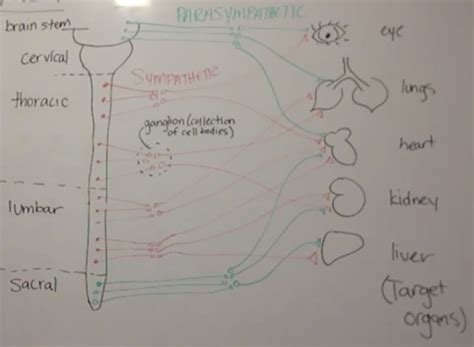 PARASYMPATHETIC
brain stem
eye
cervical
SYMPATHETIC
thoracic
lungs
ganglion (collection
of cell bodies)
heart
lumbar
kidney
sacral
liver
(Target
organs)